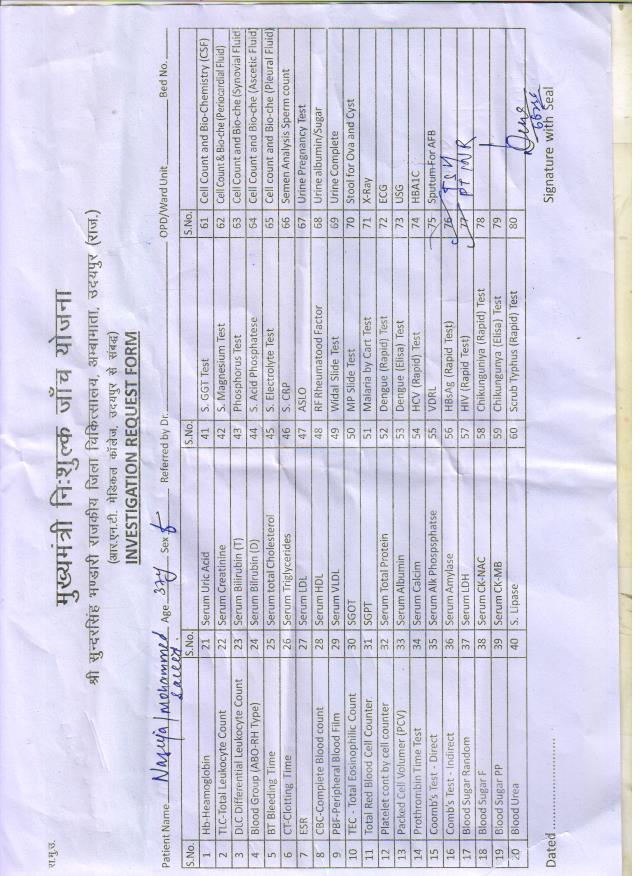 रा.मु.उ.
मुख्यमंत्री निःशुल्क जाँच योजना
श्री सुन्दरसिंह भण्डारी राजकीय जिला चिकित्सालय, अम्बामाता, उदयपुर (राज.)
(आर.एन.टी. मेडिकल कॉलेज, उदयपुर से संबद्ध)
INVESTIGATION REQUEST FORM
Patient Name Age 37y Sex Referred by Dr. OPD/Ward Unit Bed No.
S.No. S.No. S.No. S.No.
1 Hb-Heamoglobin 21 Serum Uric Acid 41 S. GGT Test 61 Cell Count and Bio-Chemistry (CSF)
2 TLC-Total Leukocyte Count 22 Serum Creatinine 42 S. Magnesium Test 62 Cell Count & Bio-che (Periocardial Fluid)
3 DLC-Differential Leukocyte Count 23 Serum Bilirubin (T) 43 Phosphorus Test 63 Cell Count and Bio-che (Synovial Fluid)
4 Blood Group (ABO-RH Type) 24 Serum Bilrubin (D) 44 S. Acid Phosphatese 64 Cell Count and Bio-che (Ascetic Fluid)
5 BT Bleeding Time 25 Serum total Cholesterol 45 S. Electrolyte Test 65 Cell count and Bio-che (Pleural Fluid)
6 CT-Clotting Time 26 Serum Triglycerides 46 S. CRP 66 Semen Analysis Sperm count
7 ESR 27 Serum LDL 47 ASLO 67 Urine Pregnancy Test
8 CBC-Complete Blood count 28 Serum HDL 48 RF Rheumatood Factor 68 Urine albumin/Sugar
9 PBF-Peripheral Blood Film 29 Serum VLDL 49 Widal Slide Test 69 Urine Complete
10 TEC - Total Eosinophilic Count 30 SGOT 50 MP Slide Test 70 Stool for Ova and Cyst
11 Total Red Blood Cell Counter 31 SGPT 51 Malaria by Cart Test 71 X-Ray
12 Platelet cont by cell counter 32 Serum Total Protein 52 Dengue (Rapid) Test 72 ECG
13 Packed Cell Volumer (PCV) 33 Serum Albumin 53 Dengue (Elisa) Test 73 USG
14 Prothrombin Time Test 34 Serum Calcim 54 HCV (Rapid) Test 74 HBA1C
15 Coomb's Test - Direct 35 Serum Alk Phospsphatse 55 VDRL 75 Sputum For AFB
16 Comb's Test - Indirect 36 Serum Amylase 56 HBsAg (Rapid Test) 76 TSH
17 Blood Sugar Random 37 Serum LDH 57 HIV (Rapid Test) 77 PT INR
18 Blood Sugar F 38 Serum CK-NAC 58 Chikunguniya (Rapid) Test 78
19 Blood Sugar PP 39 Serum CK-MB 59 Chikungunya (Elisa) Test 79
20 Blood Urea 40 S. Lipase 60 Scrub Typhus (Rapid) Test 80
Dated Signature with Seal